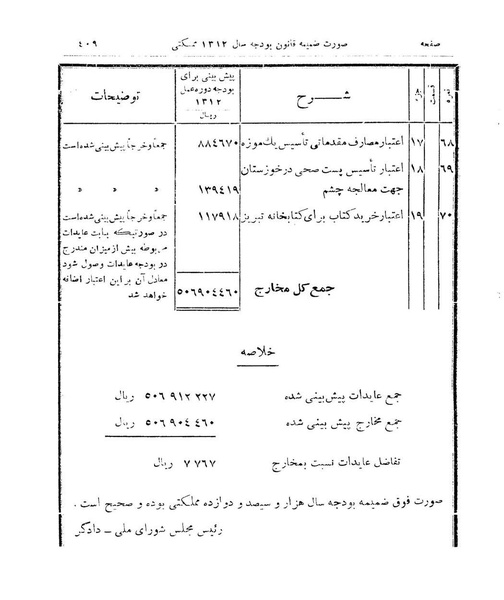 صفحه صورت ضمیمه قانون بودجه سال ۱۳۱۲ مملکتی ۴۰۹
جزء شرح پیش بینی برای بودجه دوره عمل ۱۳۱۲ ریال توضیحات
۶۸ ۱۷ اعتبار مصارف مقدماتی تأسیس یك موزه ۸۸۴۶۷۰ جمعاً و خرجاً پیش بینی شده است
۶۹ ۱۸ اعتبار تأسیس پست صحی در خوزستان
جهت معالجه چشم ۱۳۹۴۱۹ » » »
۷۰ ۱۹ اعتبار خرید کتاب برای کتابخانه تبریز ۱۱۷۹۱۸ جمعاً و خرجاً پیش بینی شده است
در صورتیکه بابت عایدات
مربوطه بیش از میزان مندرج
در بودجه عایدات وصول شود
معادل آن بر این اعتبار اضافه
خواهد شد
جمع کل مخارج ۵۰۶۹۰۴۴۶۰
خلاصه
جمع عایدات پیش بینی شده ۵۰۶ ۹۱۲ ۲۲۷ ریال
جمع مخارج پیش بینی شده ۵۰۶ ۹۰۴ ۴۶۰ ریال
تفاضل عایدات نسبت بمخارج ۷ ۷۶۷ ریال
صورت فوق ضمیمه بودجه سال هزار و سیصد و دوازده مملکتی بوده و صحیح است .
رئیس مجلس شورای ملی – دادگر